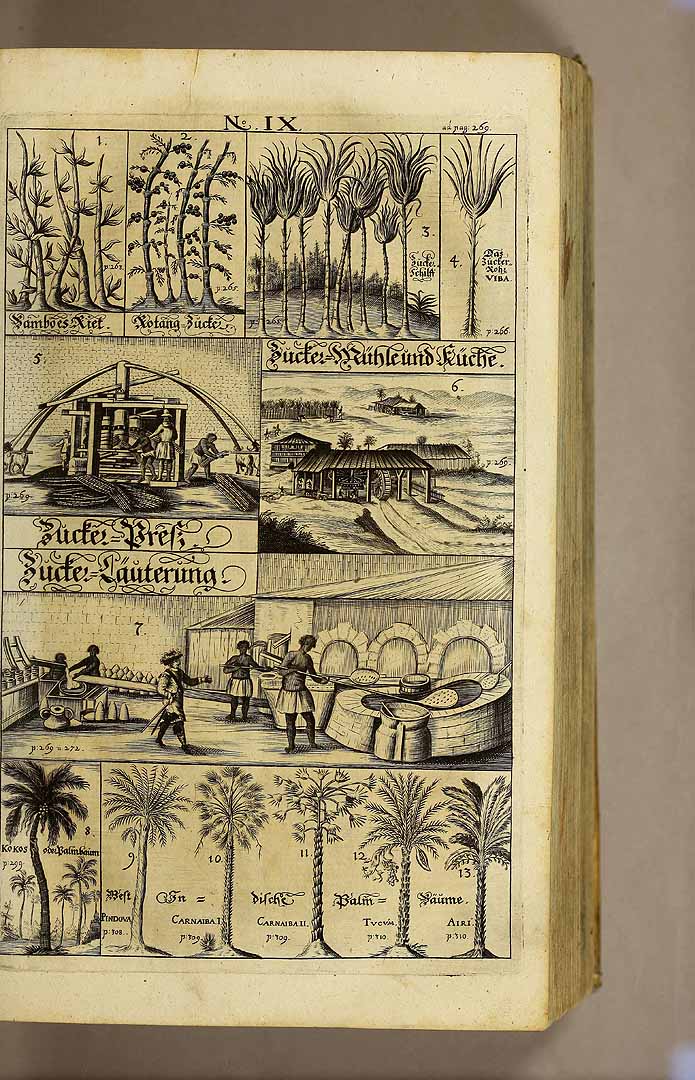 No. IX.
ad pag: 269.
1.
p: 265.
Bambôes Riet.
2.
p: 265.
Rotang Zucker
3.
Zucker Schilff
p: 265
4.
Daß
Zucker
Rohr
VIBA.
p: 266.
5.
p: 269.
Zucker-Preſz.
Zucker-Mühle und Küche.
6.
p: 269.
Zucker-Läuterung.
7.
p: 269 u 272.
8.
KOKOS oder Palmbaum
p: 299.
9.
10.
11.
12.
13.
West In = dische Palm = Bäume.
PINDOVA
p: 308.
CARNAIBA I
p: 309.
CARNAIBA II.
p: 309.
TUCUM.
p: 310
AIRI.
p: 310